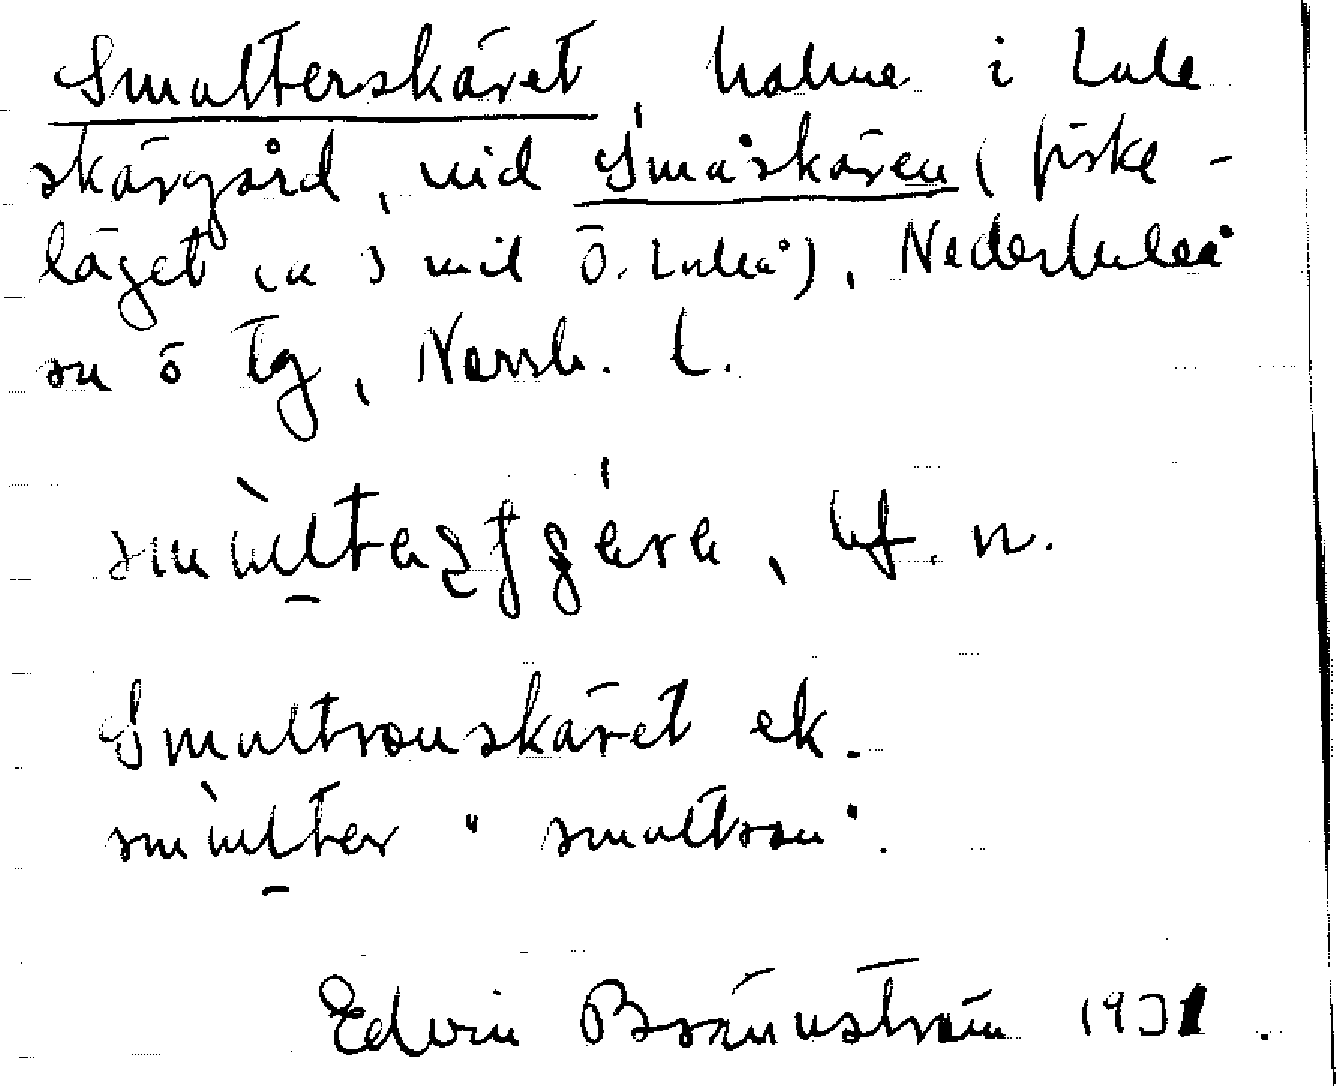 Smulterskäret, holme i Lule
skärgård, vid Småskären (fiske-
läget ca 3 mil ö. Luleå), Nederluleå
sn o tg, Norrb. l.
bf. n.
Smultronskäret ek.
smùlter "smultron".
Edvin Brännström 1931.